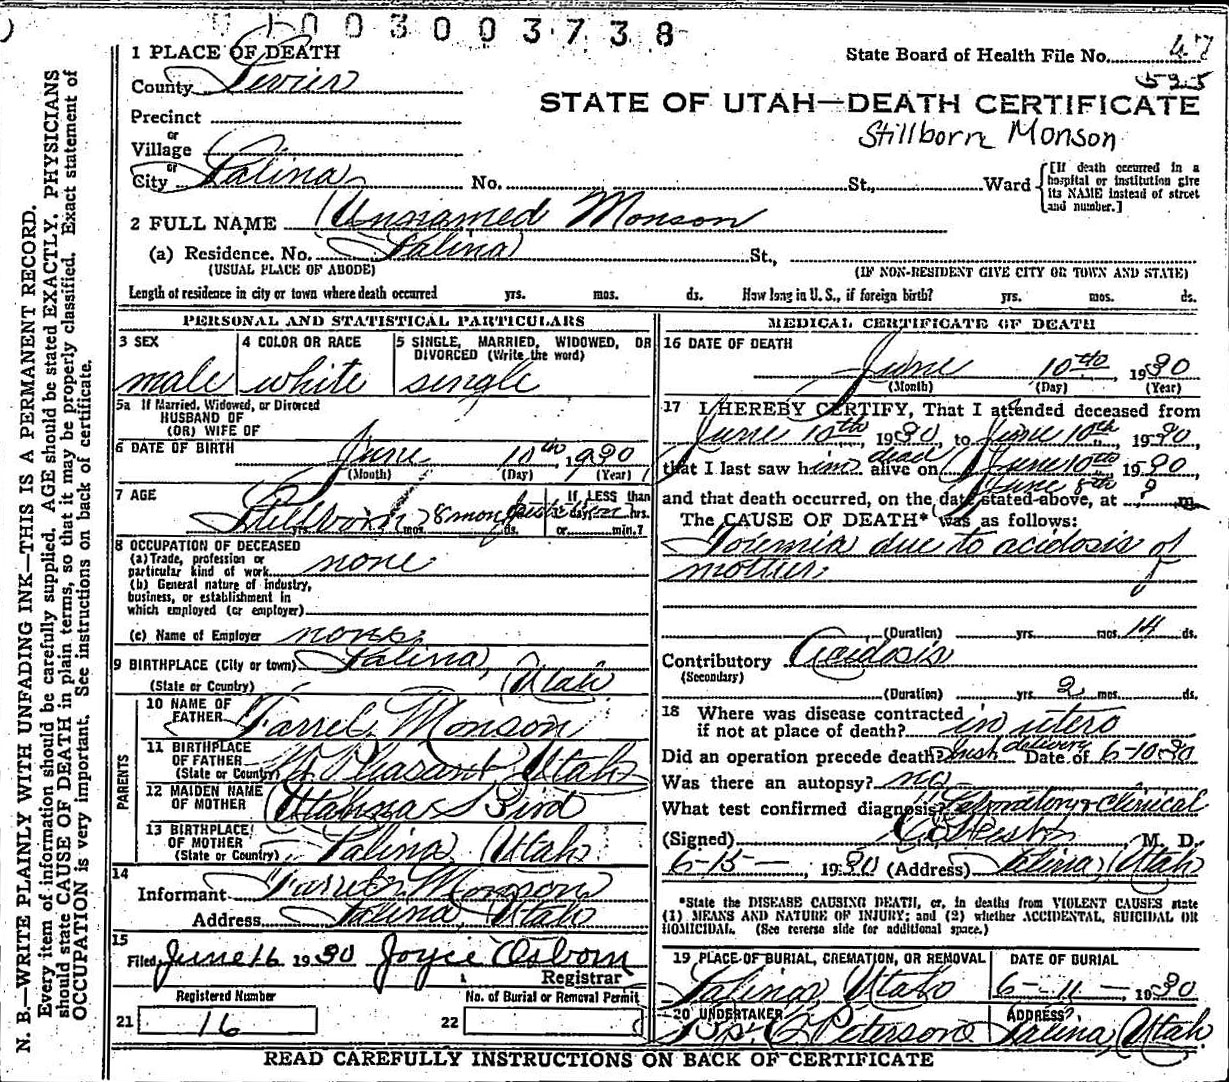 003003738
1 PLACE OF DEATH
State Board of Health File No. 47
County Sevier
525
STATE OF UTAH—DEATH CERTIFICATE
Precinct
Stillborn Monson
or
Village
or
City Salina No. St., Ward [If death occurred in a hospital or institution give its NAME instead of street and number.]
2 FULL NAME Unnamed Monson
(a) Residence. No. Salina St.,
(USUAL PLACE OF ABODE) (IF NON-RESIDENT GIVE CITY OR TOWN AND STATE)
Length of residence in city or town where death occurred yrs. mos. ds. How long in U. S., if foreign birth? yrs. mos. ds.
PERSONAL AND STATISTICAL PARTICULARS
3 SEX
male
4 COLOR OR RACE
white
5 SINGLE, MARRIED, WIDOWED, OR
DIVORCED (Write the word)
single
5a If Married, Widowed, or Divorced
HUSBAND OF
(OR) WIFE OF
6 DATE OF BIRTH June 10th, 1930
(Month) (Day) (Year)
7 AGE Stillborn 8 mon
yrs. mos. ds.
If LESS than
day, hrs.
or min.?
8 OCCUPATION OF DECEASED
(a) Trade, profession or
particular kind of work none
(b) General nature of Industry,
business, or establishment in
which employed (or employer)
(c) Name of Employer none
9 BIRTHPLACE (City or town) Salina,
(State or Country) Utah
PARENTS
10 NAME OF
FATHER Farrel Monson
11 BIRTHPLACE
OF FATHER
(State or Country) Mt Pleasant Utah
12 MAIDEN NAME
OF MOTHER Utahna Bird
13 BIRTHPLACE
OF MOTHER
(State or Country) Salina, Utah
14
Informant Farrel Monson
Address Salina, Utah
15
Filed June 16 1930 Joyce Osborn
Registrar
Registered Number
21 16
No. of Burial or Removal Permit
22
MEDICAL CERTIFICATE OF DEATH
16 DATE OF DEATH
June 10th, 1930
(Month) (Day) (Year)
17 I HEREBY CERTIFY, That I attended deceased from
June 10th, 1930, to June 10th, 1930,
that I last saw him dead alive on June 10th 1930
June 8th
and that death occurred, on the date stated above, at ? m
The CAUSE OF DEATH* was as follows:
Toxemia due to acidosis of
mother.
(Duration) yrs. mos. 14 ds.
Contributory Acidosis
(Secondary)
(Duration) yrs. 2 mos. ds.
18 Where was disease contracted
if not at place of death? in utero
Did an operation precede death? delivery Date of 6-10-30
Was there an autopsy? no
What test confirmed diagnosis? Laboratory & clinical
(Signed) M. D.
6-15- 1930 (Address) Salina, Utah
*State the DISEASE CAUSING DEATH, or, in deaths from VIOLENT CAUSES state
(1) MEANS AND NATURE OF INJURY; and (2) whether ACCIDENTAL, SUICIDAL OR
HOMICIDAL. (See reverse side for additional space.)
19 PLACE OF BURIAL, CREMATION, OR REMOVAL
Salina, Utah
DATE OF BURIAL
6-11-, 1930
20 UNDERTAKER
Peterson
ADDRESS
Salina, Utah
READ CAREFULLY INSTRUCTIONS ON BACK OF CERTIFICATE
N. B.—WRITE PLAINLY WITH UNFADING INK—THIS IS A PERMANENT RECORD.
Every item of information should be carefully supplied. AGE should be stated EXACTLY. PHYSICIANS
should state CAUSE OF DEATH in plain terms, so that it may be properly classified. Exact statement of
OCCUPATION is very important. See instructions on back of certificate.